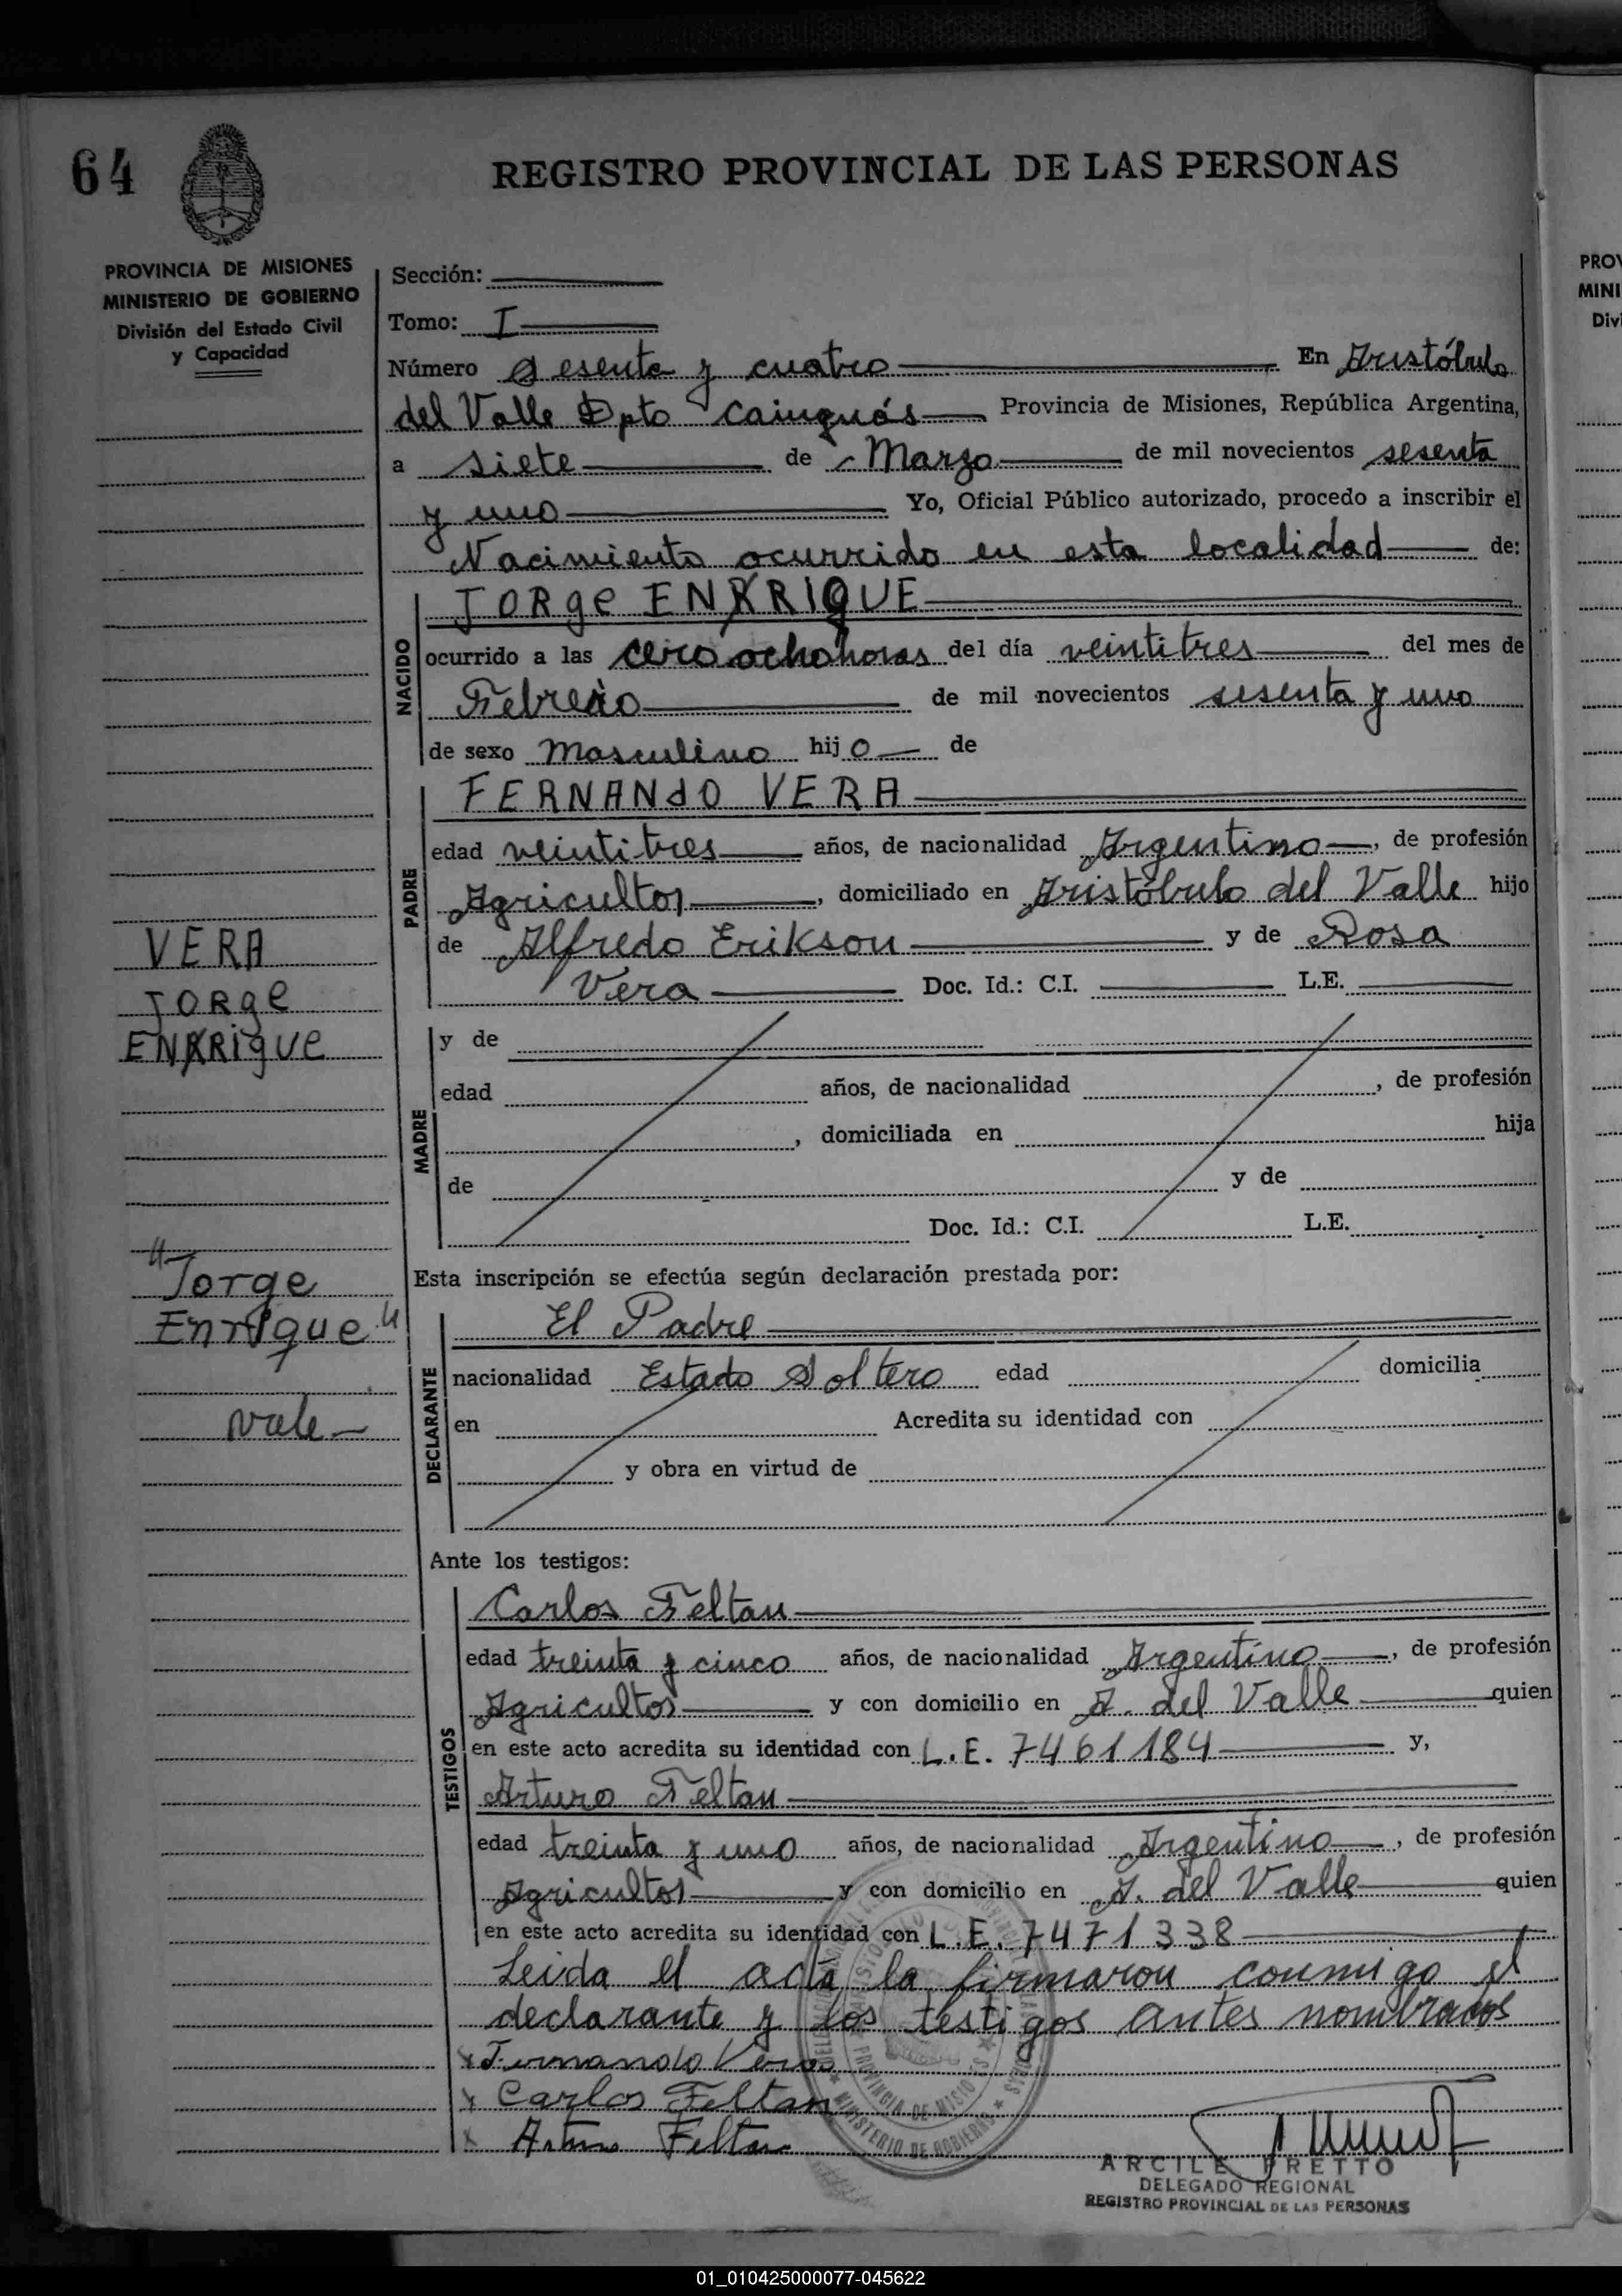 64
REGISTRO PROVINCIAL DE LAS PERSONAS
PROVINCIA DE MISIONES
MINISTERIO DE GOBIERNO
División del Estado Civil
y Capacidad
VERA
JORge
ENRRIQUE
"Jorge
Enrique"
vale
Sección:
Tomo: I
Número Sesenta y cuatro En Aristóbulo
del Valle Dpto Cainguás Provincia de Misiones, República Argentina,
a siete de Marzo de mil novecientos sesenta
y uno Yo, Oficial Público autorizado, procedo a inscribir el
Nacimiento ocurrido en esta localidad de:
NACIDO
JORge ENRRIQUE
ocurrido a las cero ocho horas del día veintitres del mes de
Febrero de mil novecientos sesenta y uno
de sexo Masculino hijo de
PADRE
FERNANdO VERA
edad veintitres años, de nacionalidad Argentino, de profesión
Agricultor, domiciliado en Aristóbulo del Valle hijo
de Alfredo Erikson y de Rosa
Vera Doc. Id.: C.I. L.E.
MADRE
y de
edad años, de nacionalidad , de profesión
, domiciliada en hija
de y de
Doc. Id.: C.I. L.E.
Esta inscripción se efectúa según declaración prestada por:
DECLARANTE
El Padre
nacionalidad Estado Soltero edad domicilia
en Acredita su identidad con
y obra en virtud de
Ante los testigos:
TESTIGOS
Carlos Feltan
edad treinta y cinco años, de nacionalidad Argentino, de profesión
Agricultor y con domicilio en A. del Valle quien
en este acto acredita su identidad con L.E. 7461184 y,
Arturo Feltan
edad treinta y uno años, de nacionalidad Argentino, de profesión
Agricultor y con domicilio en A. del Valle quien
en este acto acredita su identidad con L.E. 7471338
Leida el acta la firmaron conmigo el
declarante y los testigos antes nombrados
Fernando Vera
Carlos Feltan
Arturo Feltan
PROVINCIA DE MISIONES
MINISTERIO DE GOBIERNO
ARCILE PRETTO
DELEGADO REGIONAL
REGISTRO PROVINCIAL DE LAS PERSONAS
PROV
MINI
Divi
01_010425000077-045622